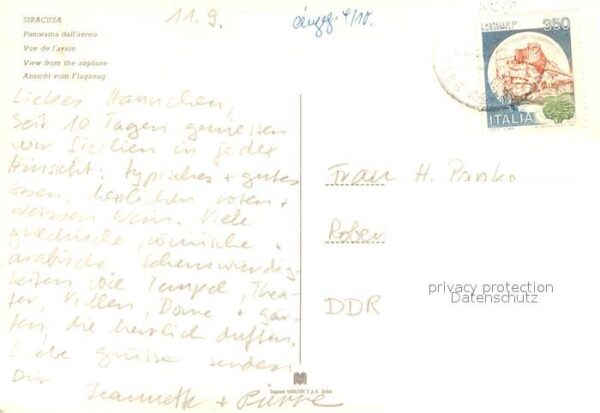 11.9.
SIRACUSA
Panorama dall'aereo
Vue de l'avion
View from the airplane
Ansicht vom Flugzeug
350
ITALIA
Liebes Hannchen,
Seit 10 Tagen geniessen
wir Sizilien in jeder
Hinsicht: typisches + gutes
essen, herrlichen roten +
weissen Wein. Viele
griechische, römische +
arabische Sehenswürdig-
keiten wie Tempel, Thea-
ter, Villen, Dome + gär-
ten, die herrlich duften.
Liebe grüsse senden
Dir Jeannette + Pierre
Frau H.
DDR
privacy protection
Datenschutz